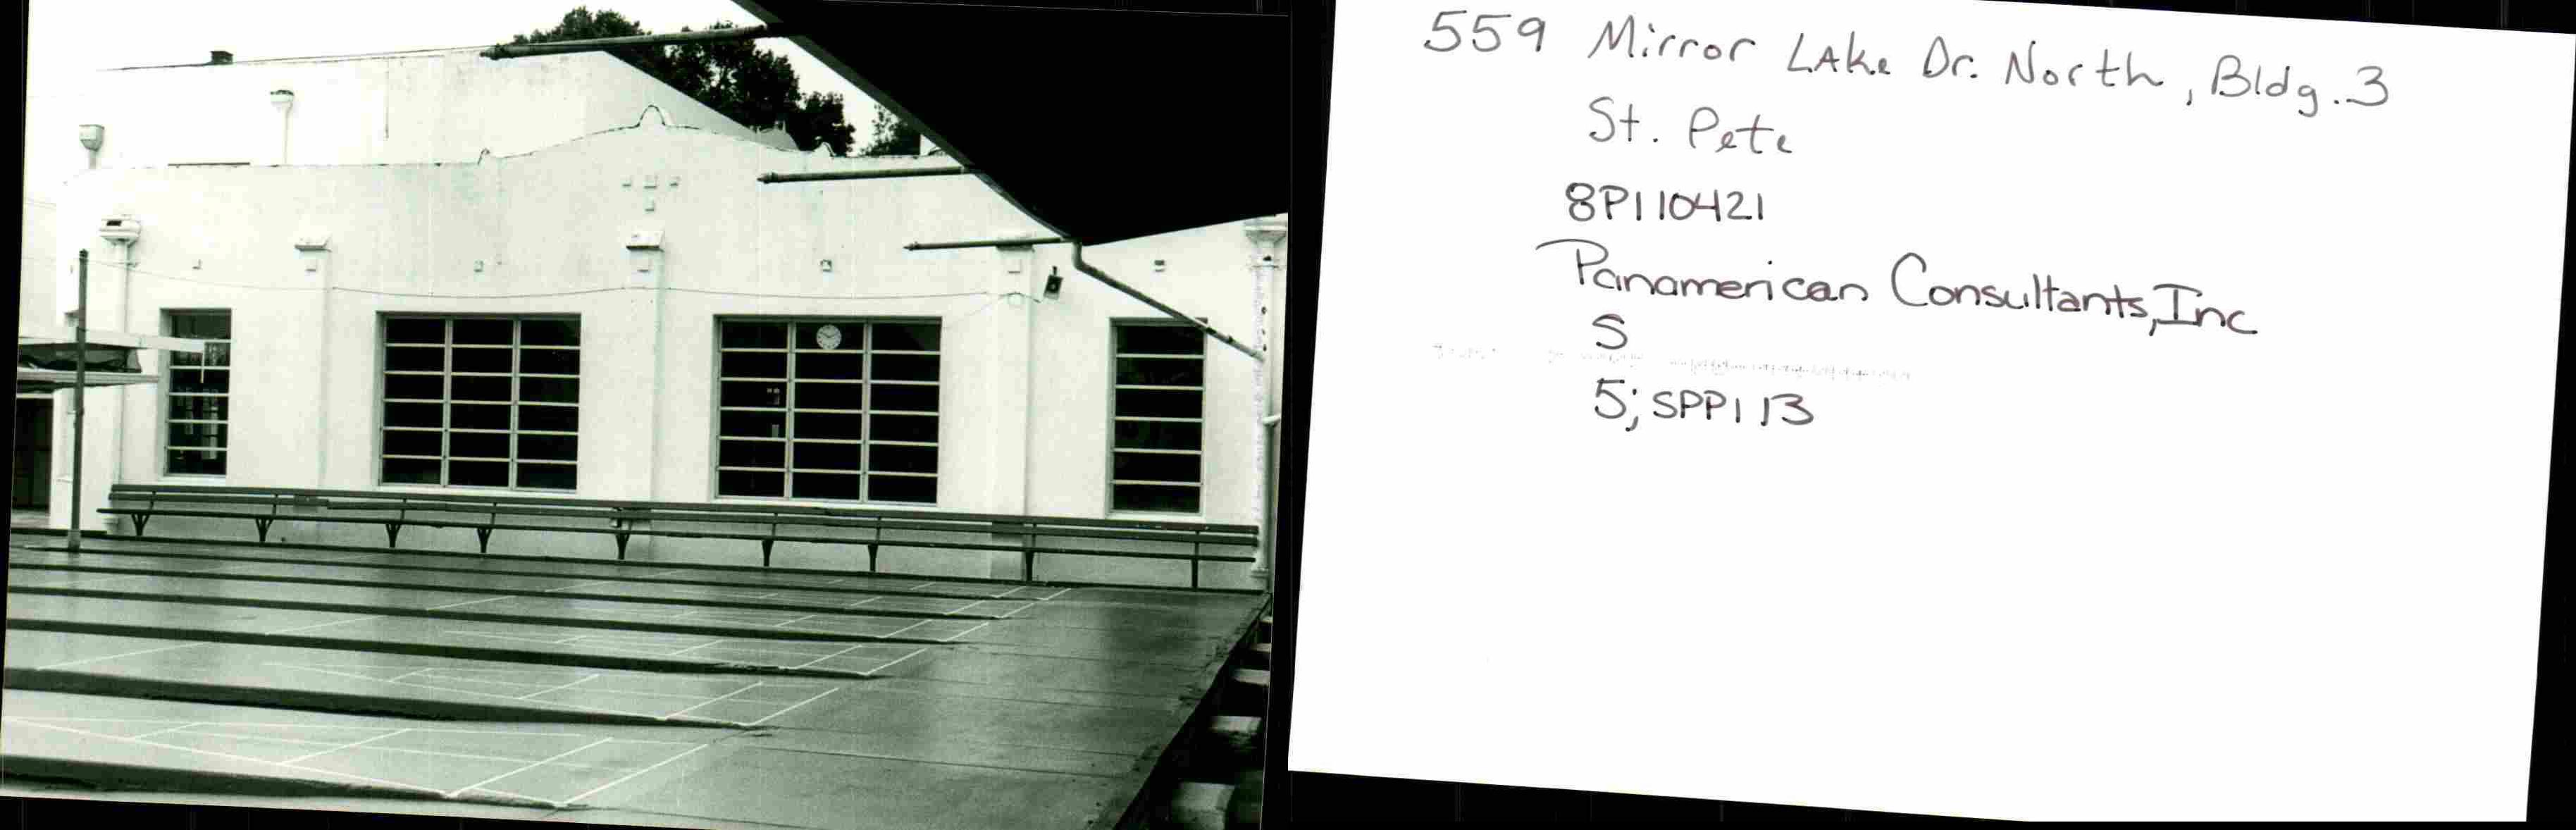 559 Mirror Lake Dr. North, Bldg. 3
St. Pete
8PI10421
Panamerican Consultants, Inc
S
5; SPP1 13